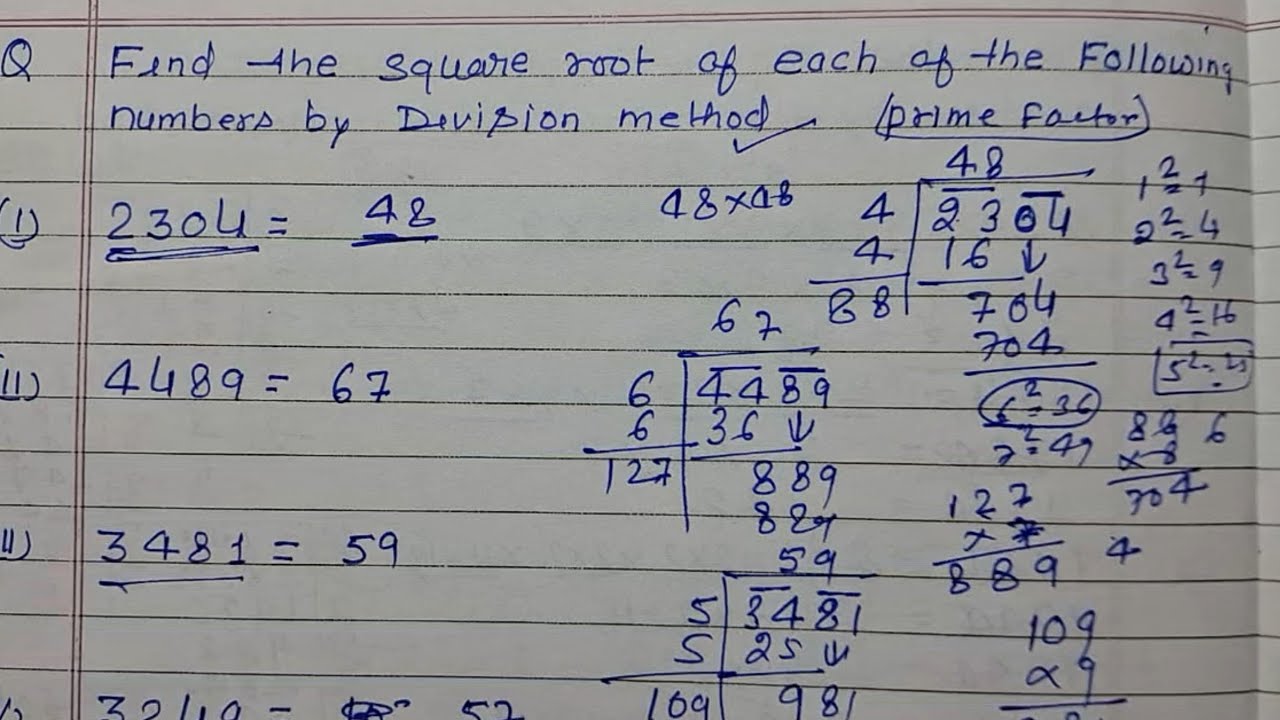 Q Find the square root of each of the Following
numbers by Division method (prime Factor)
(I) 2304 = 48
48×48
48
4 2304
4 16 ↓
88 704
704
1²=1
2²=4
3²=9
4²=16
5²=25
6²=36
7²=49
88 6
×8
704
(II) 4489 = 67
67
6 4489
6 36 ↓
127 889
889
127
×7
889 4
II) 3481 = 59
59
5 3481
5 25 ↓
109 981
109
×9
3249 = 57